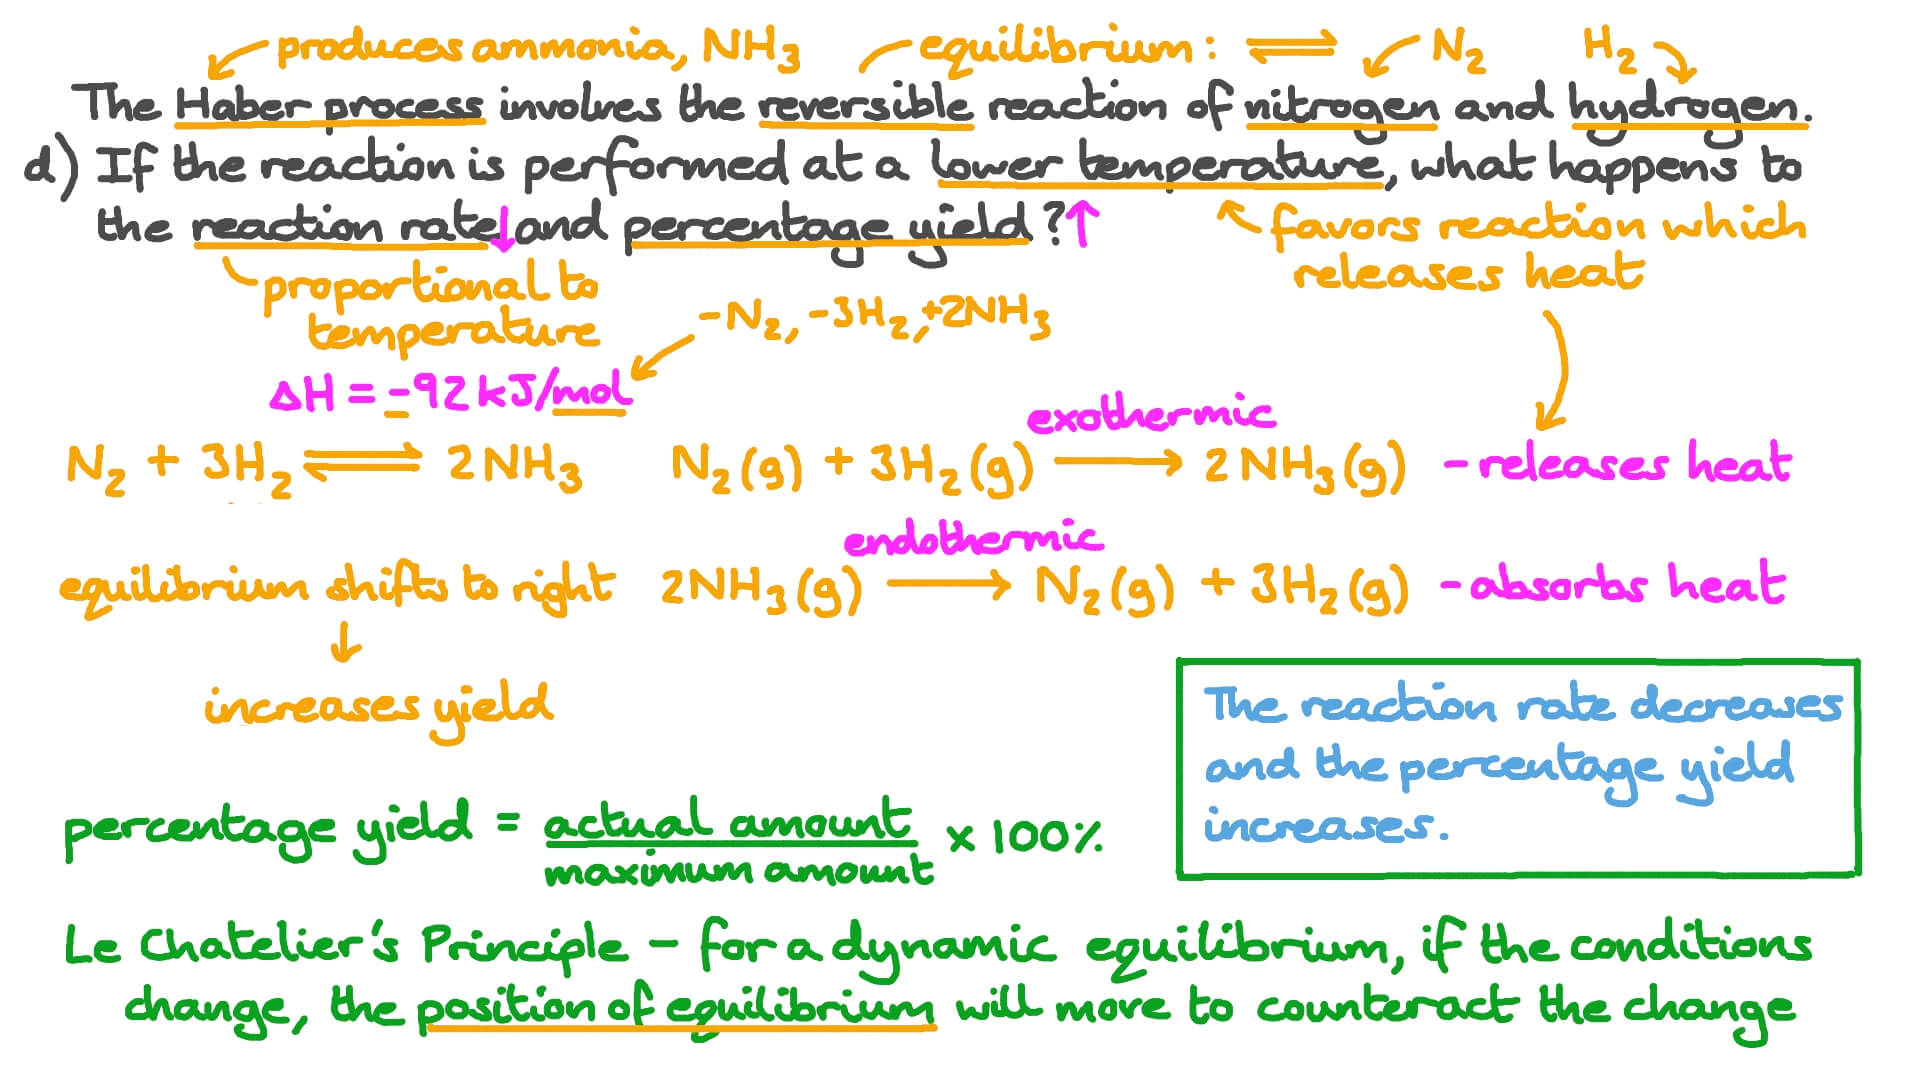 produces ammonia, NH3 equilibrium: ⇌ N2 H2
The Haber process involves the reversible reaction of nitrogen and hydrogen.
d) If the reaction is performed at a lower temperature, what happens to
the reaction rate↓ and percentage yield?↑
favors reaction which
releases heat
proportional to
temperature
-N2, -3H2, +2NH3
ΔH = -92 kJ/mol
N2 + 3H2 ⇌ 2NH3
exothermic
N2(g) + 3H2(g) → 2NH3(g) - releases heat
endothermic
equilibrium shifts to right
2NH3(g) → N2(g) + 3H2(g) - absorbs heat
↓
increases yield
The reaction rate decreases
and the percentage yield
increases.
percentage yield = actual amount / maximum amount × 100%
Le Chatelier's Principle - for a dynamic equilibrium, if the conditions
change, the position of equilibrium will move to counteract the change